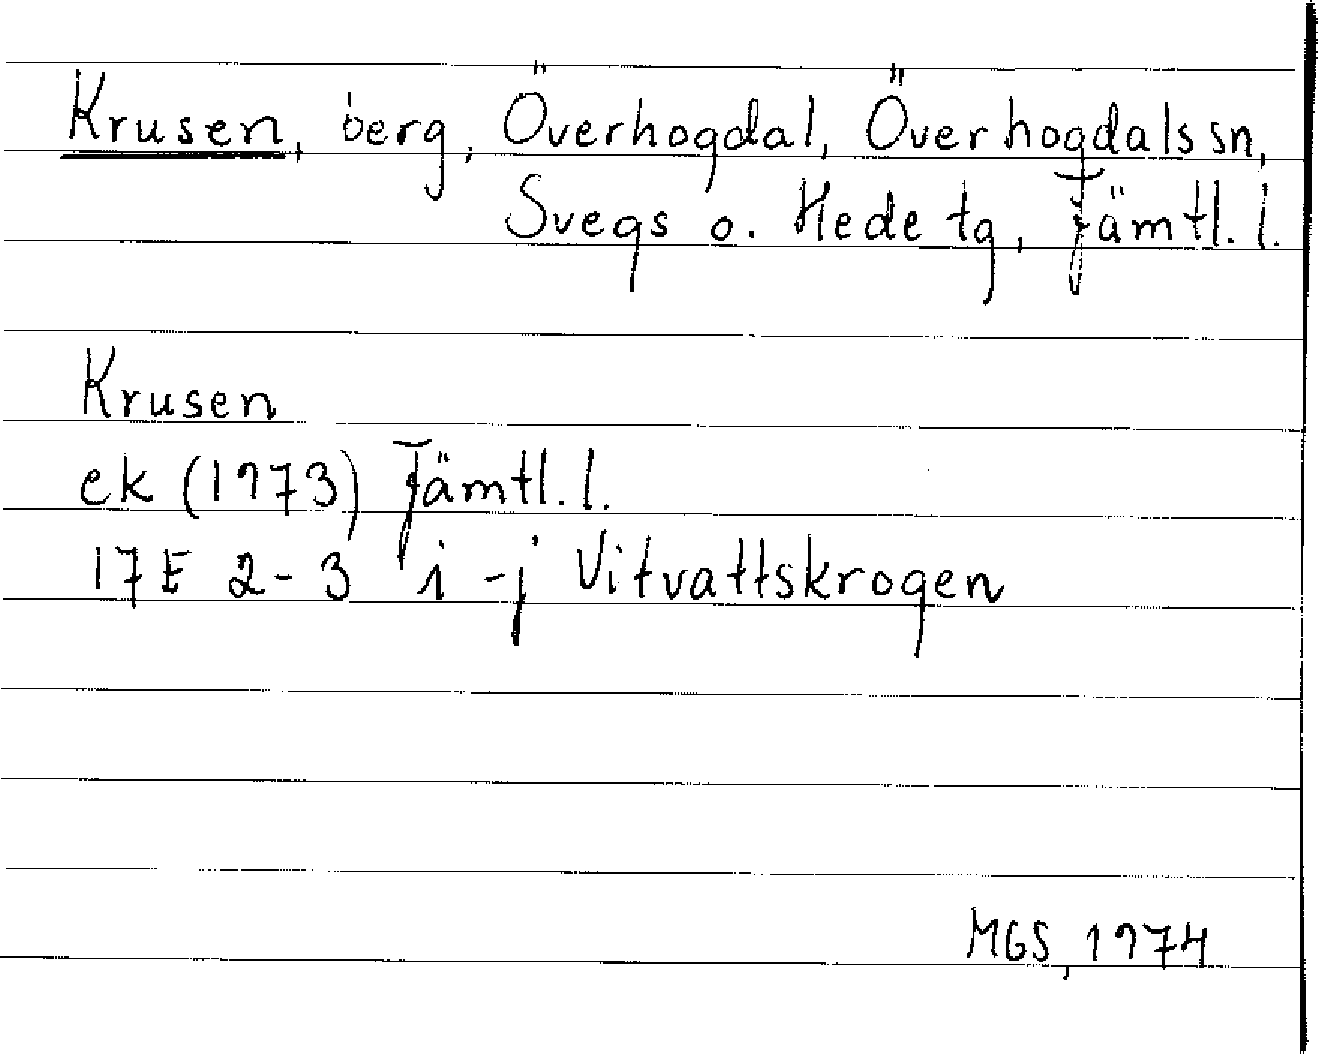 Krusen, berg, Överhogdal, Överhogdals sn,
Svegs o. Hede tg, Jämtl. l.
Krusen
ek (1973) Jämtl. l.
17E 2-3 i-j Vitvattskrogen
MGS, 1974